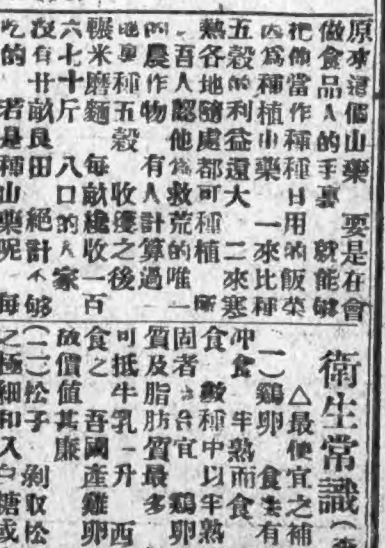 原來這個山藥 要是在會
做食品人的手裏 就能够
把他當作種種日用的飯菜
因為種植山藥 一來比種
五穀的利益還大 二來寒
熱各地隨處都可種植 所
吾人認他為救荒的唯一
的農作物 有人計算過
地裏種五穀 收穫之後
輾米磨麵 每畝纔收一百
六七十斤 八口的人家
沒有廿畝良田 絕計不够
吃的 若是種山藥呢 每
衛生常識
△最便宜之補
(一)鷄卵 食生有
冲食 半熟而食
食 數種中以半熟
固者 合宜 鷄卵
質及脂肪質最多
可抵牛乳一升 西
食之 吾國產雞卵
故價值甚廉
(二)松子 剝取松
之極細和入白糖或